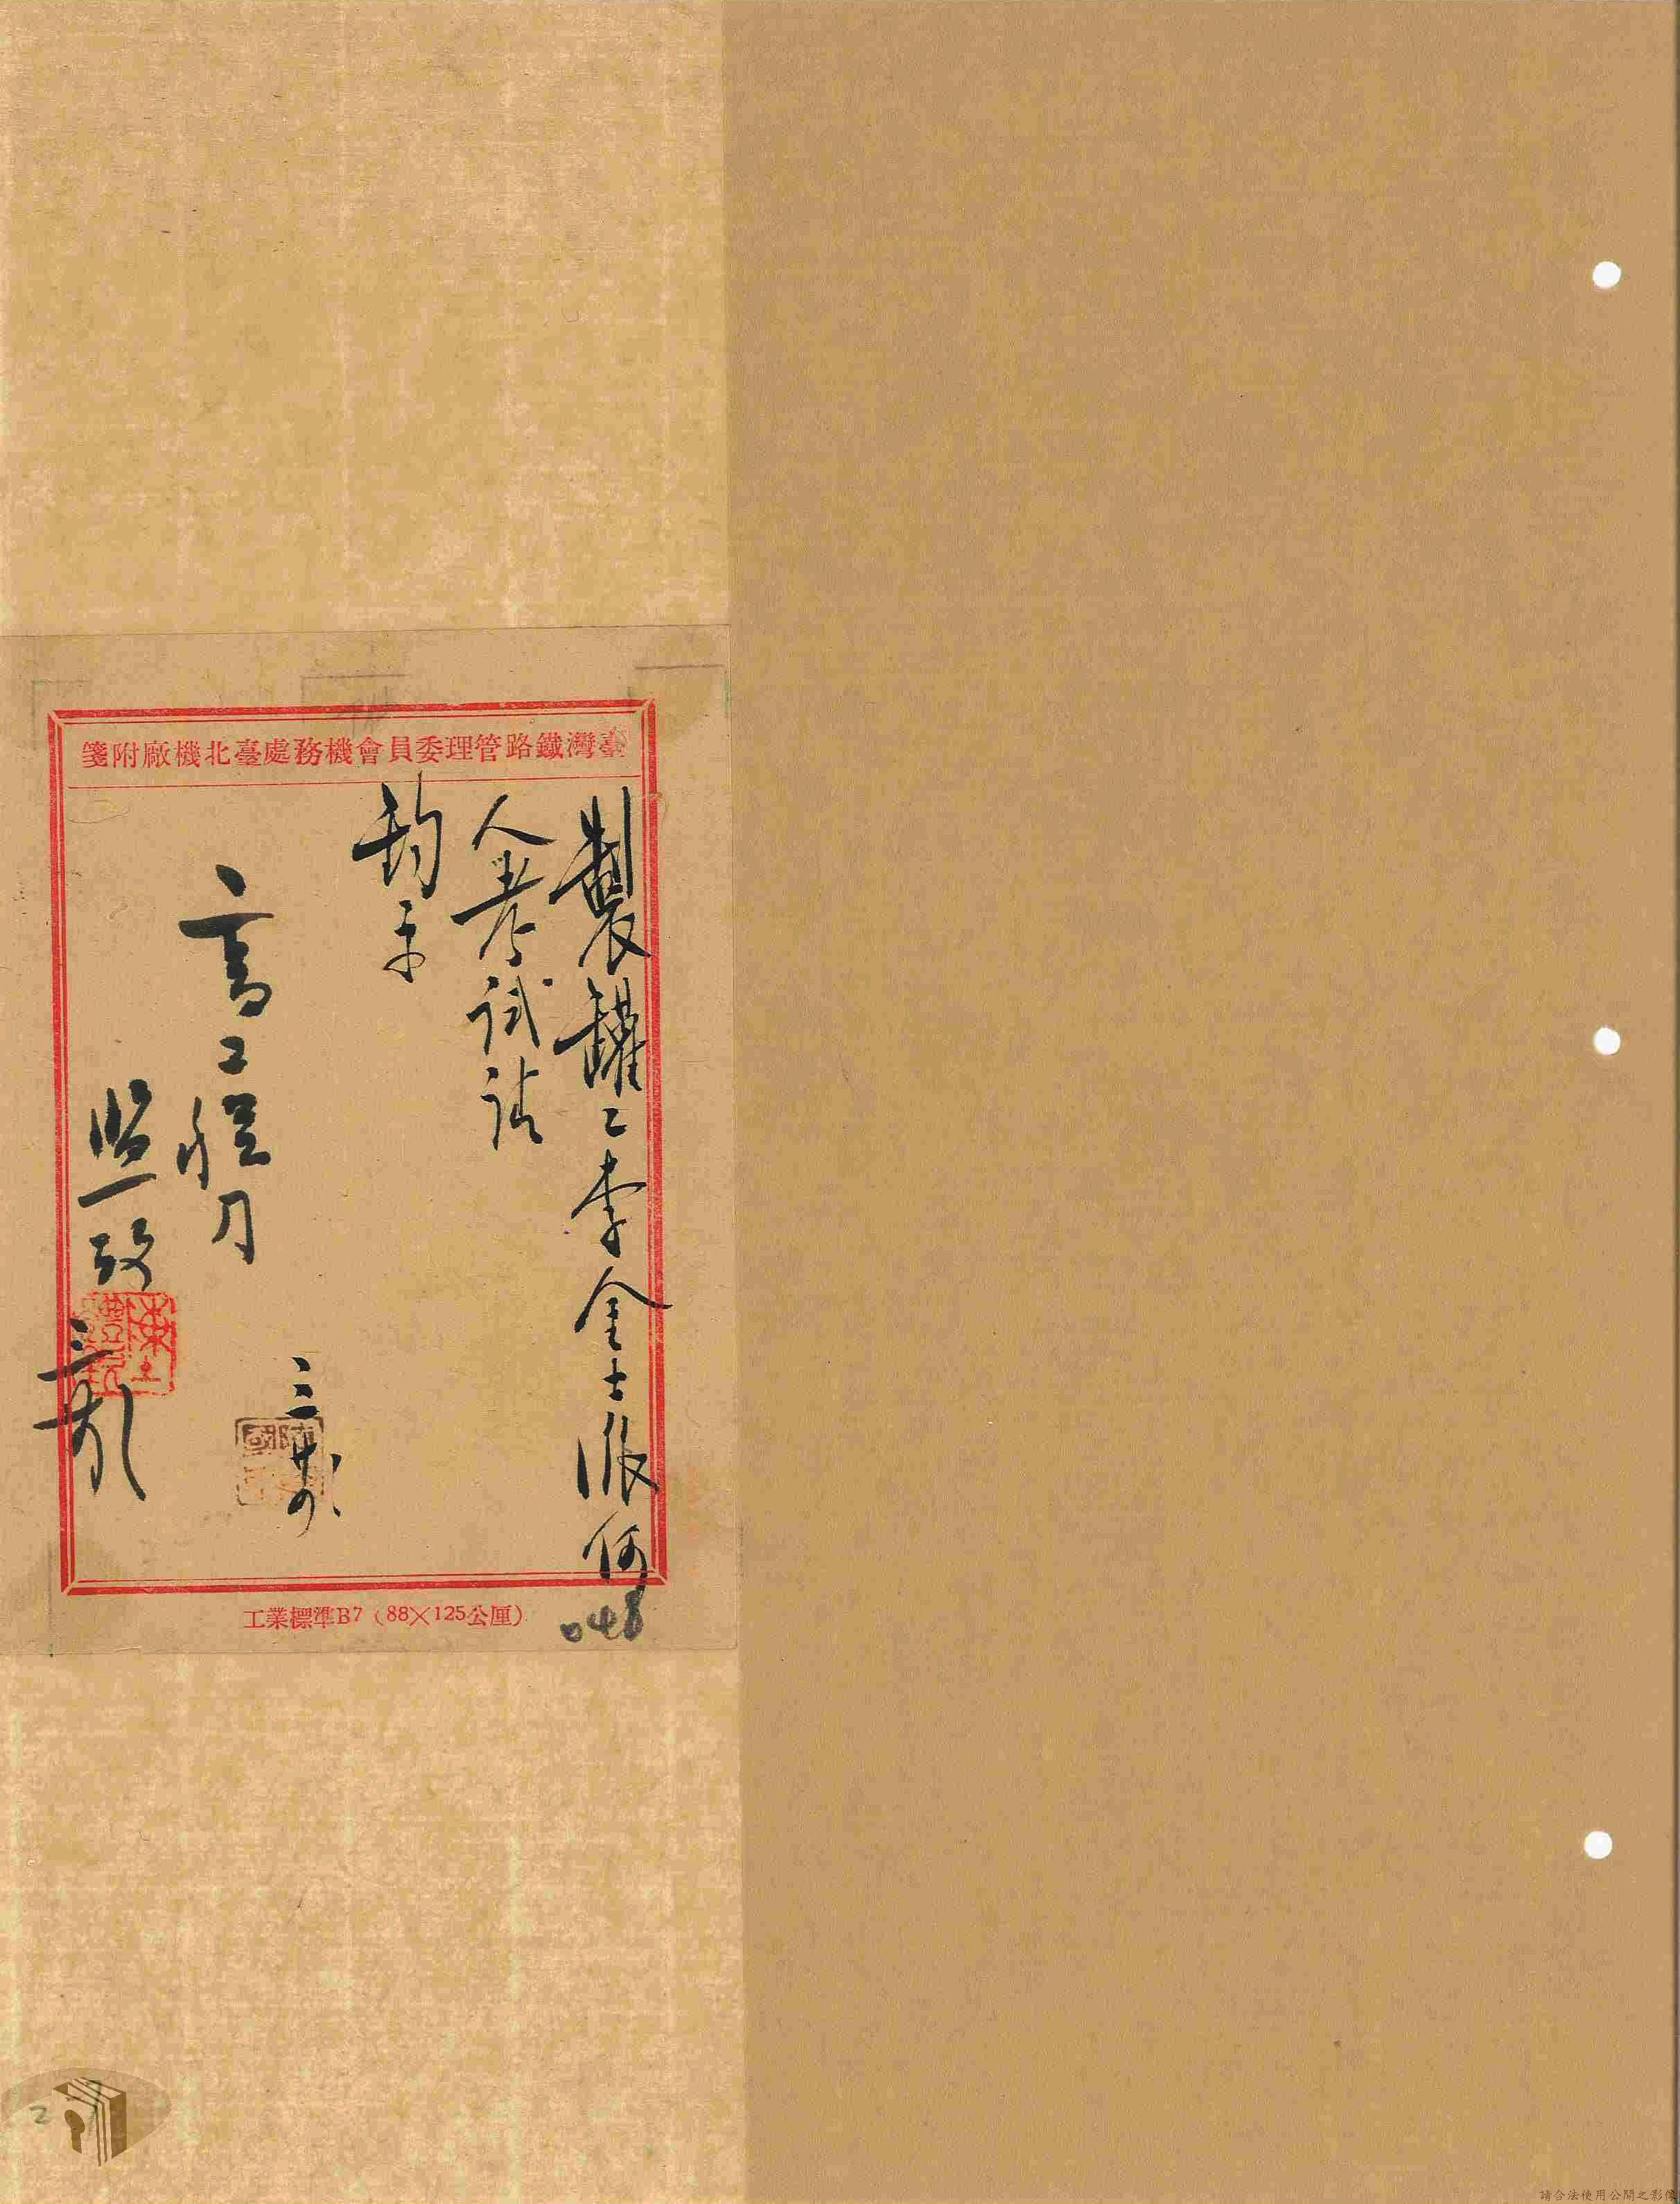 臺灣鐵路管理委員會機務處臺北機廠附箋
製罐工李金士派何
人考試請
鈞示
高工程司
三
照政
工業標準B7（88×125公厘）
048
2
請合法使用公開之影像